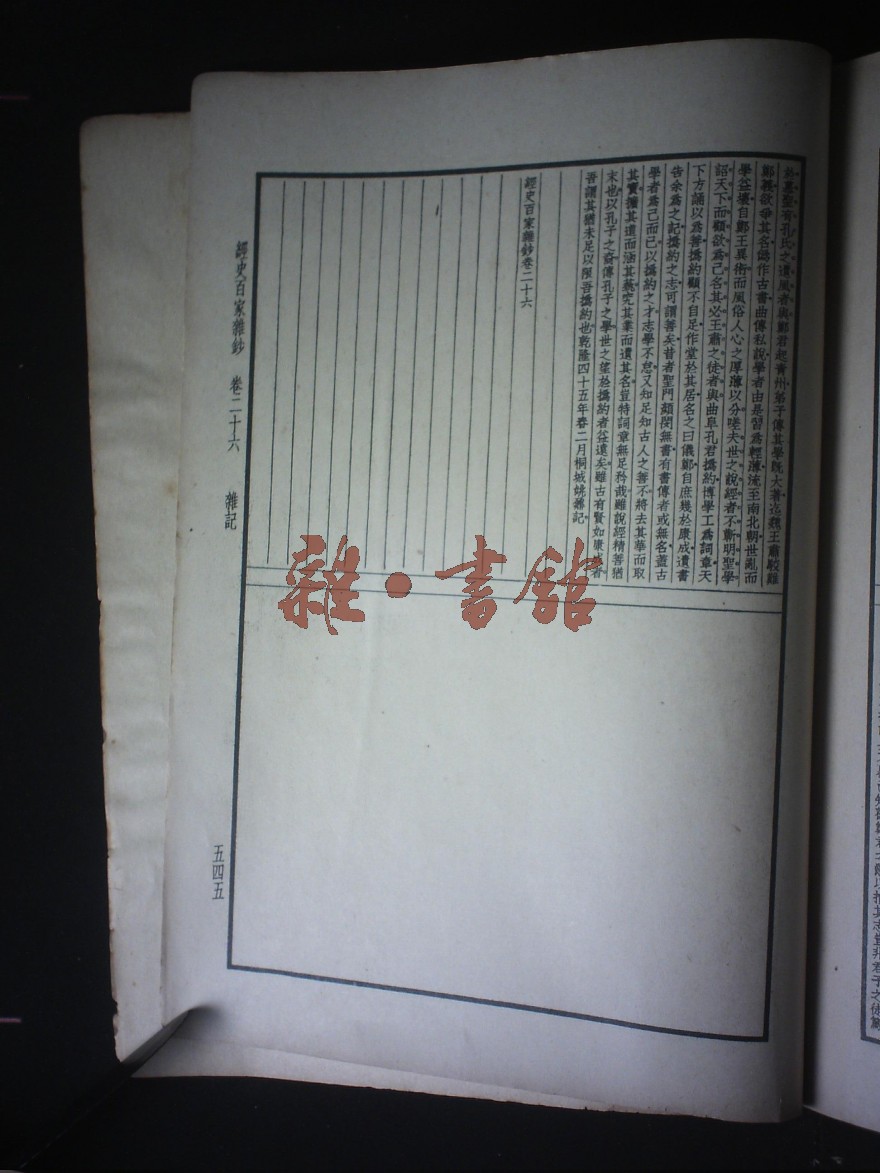 於慕聖有孔氏之遺風者與鄭君起青州弟子傳其學既大著迄魏王肅駁難
鄭義欲爭其名偽作古書曲傳私說學者由是習為輕薄流至南北朝世亂而
學益壞自鄭王異術而風俗人心之厚薄以分嗟夫世之說經者不蘄明聖學
詔天下而顧欲為己名其必王肅之徒者與曲阜孔君撝約博學工為詞章天
下方誦以為善撝約顧不自足作堂於其居名之曰儀鄭自庶幾於康成遺書
告余為之記撝約之志可謂善矣昔者聖門顏閔無書有書傳者或無名蓋古
學者為己而已以撝約之才志學不怠又知足知古人之善不將去其華而取
其實擴其道而涵其藝究其業而遺其名豈特詞章無足矜哉雖說經精善猶
末也以孔子之裔傳孔子之學世之望於撝約者益遠矣雖古有賢如康成者
吾謂其猶未足以限吾撝約也乾隆四十五年春二月桐城姚鼐記
經史百家雜鈔卷二十六
經史百家雜鈔 卷二十六 雜記
五四五
雜·書館